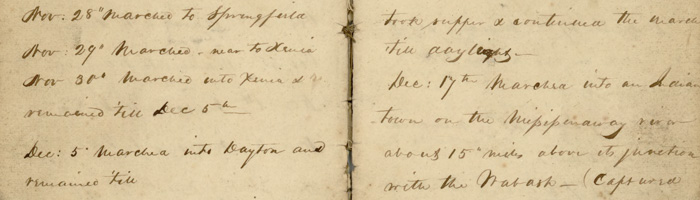 Nov: 28" Marched to Springfield
Nov: 29" Marched - near to Xenia
Nov 30" Marched into Xenia &
remained till Dec 5th
Dec: 5" Marched into Dayton and
remained till
took supper & continued the march
till daylight —
Dec: 17th Marched into an Indian
town on the Missisinaway river
about 15" miles above its junction
with the Wabash — (Captured